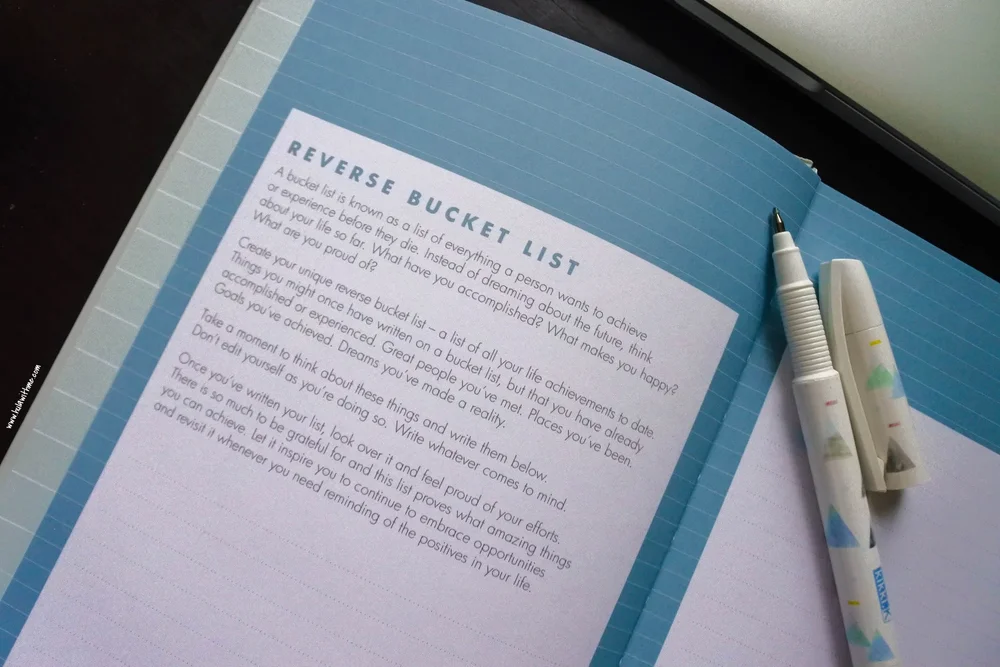 REVERSE BUCKET LIST
A bucket list is known as a list of everything a person wants to achieve
or experience before they die. Instead of dreaming about the future, think
about your life so far. What have you accomplished? What makes you happy?
What are you proud of?
Create your unique reverse bucket list – a list of all your life achievements to date.
Things you might once have written on a bucket list, but that you have already
accomplished or experienced. Great people you've met. Places you've been.
Goals you've achieved. Dreams you've made a reality.
Take a moment to think about these things and write them below.
Don't edit yourself as you're doing so. Write whatever comes to mind.
Once you've written your list, look over it and feel proud of your efforts.
There is so much to be grateful for and this list proves what amazing things
you can achieve. Let it inspire you to continue to embrace opportunities
and revisit it whenever you need reminding of the positives in your life.